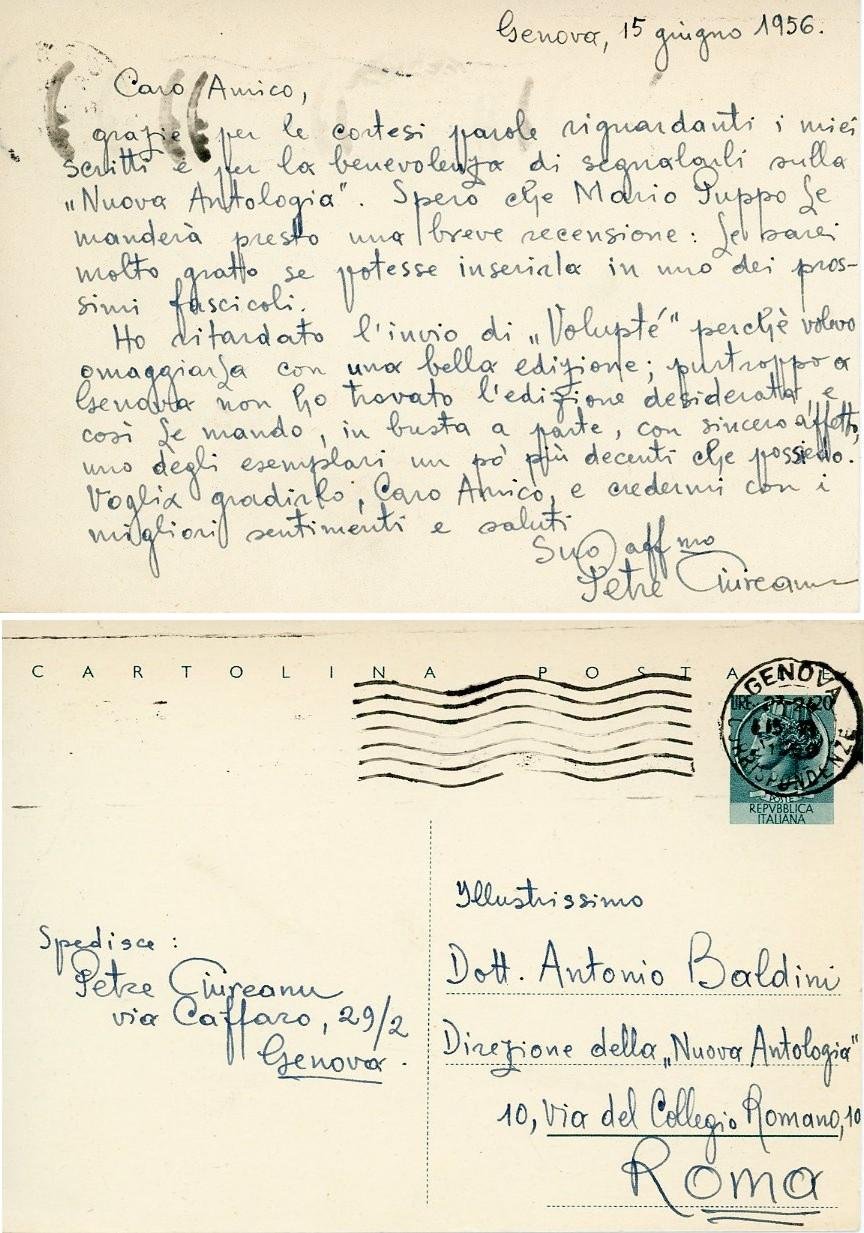 Genova, 15 giugno 1956.
Caro Amico,
grazie per le cortesi parole riguardanti i miei
scritti e per la benevolenza di segnalarli sulla
„Nuova Antologia". Spero che Mario Puppo Le
manderà presto una breve recensione: Le sarei
molto gratto se potesse inserirla in uno dei pros-
simi fascicoli.
Ho ritardato l'invio di „Volupté" perchè volevo
omaggiarLa con una bella edizione; purtroppo a
Genova non ho trovato l'edizione desiderata, e
così Le mando, in busta a parte, con sincero affetto,
uno degli esemplari un pò più decenti che possiedo.
Voglia gradirlo, Caro Amico, e credermi con i
migliori sentimenti e saluti
Suo affmo
Petre Ciureanu
CARTOLINA POSTALE
GENOVA
CORRISPONDENZE
LIRE 20
POSTE
REPVBBLICA
ITALIANA
Spedisce:
Petre Ciureanu
via Caffaro, 29/2
Genova.
Illustrissimo
Dott. Antonio Baldini
Direzione della „Nuova Antologia"
10, Via del Collegio Romano, 10
Roma